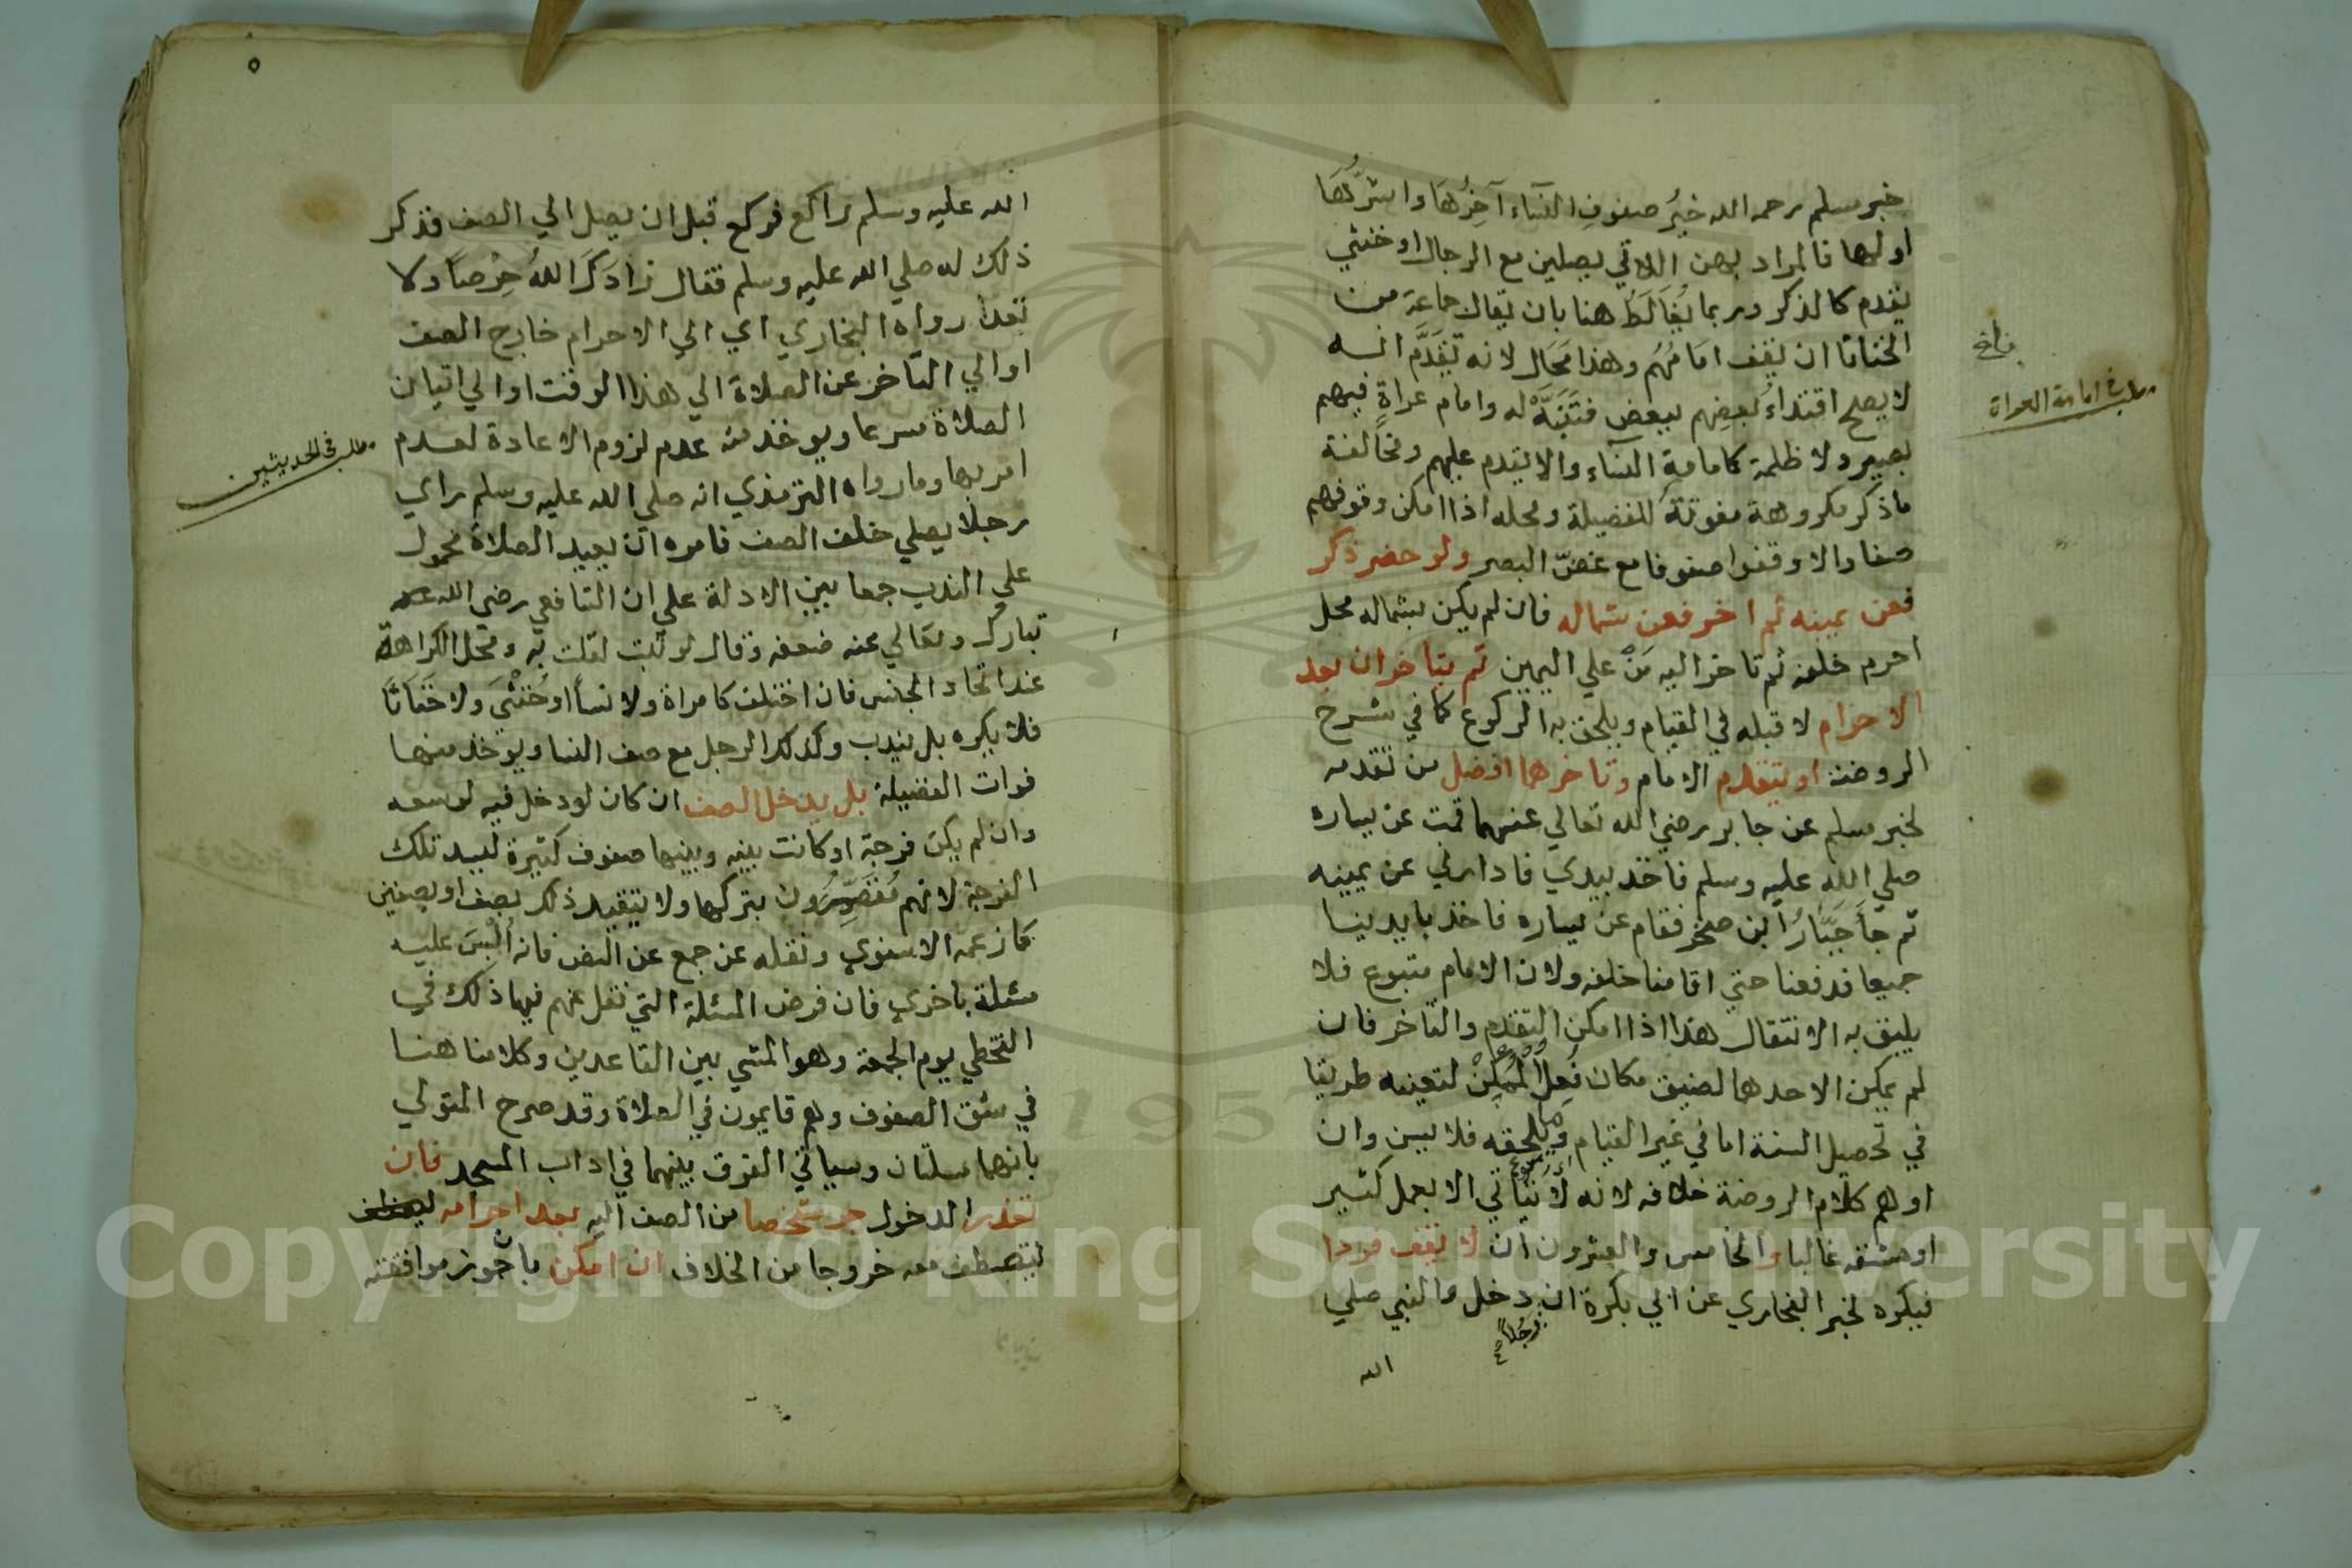 خبر مسلم رحمه الله خيرُ صفوفِ النسآء آخرُها واشرُّها
اولها فالمراد بهن اللاتي يصلين مع الرجال او خنثي
يقدم كالذكر وربما يُغَالَطُ هنا بان يقال جماعة من
الخناثا ان يقف امامُهُم وهذا مَحَال لانه تقَدَّم انه
لا يصلح اقتداءُ بعضِهم ببعض فتَنَبَّهْ له وامام عراةٍ فيهم
بصير ولا ظلمة كامامةِ النسآء والا يتقدم عليهم ومخالفة
ماذكر مكروهة مفوتة للفضيلة ومحله اذا امكن وقوفهم
صفا والا وقفوا صفوفا مع غضّ البصر ولو حضر ذكر
فعن يمينه ثم اخر فعن شماله فان لم يكن بشماله محل
احرم خلفه ثم تاخر اليه مَنْ علي اليمين ثم يتاخران بعد
الاحرام لا قبله في القيام ويلحق به الركوع كما في شرح
الروضة او يتقدم الامام وتاخرهما افضل من تقدمه
لخبر مسلم عن جابر رضي الله تعالي عنهما قمت عن يساره
صلي الله عليه وسلم فاخذ بيدي فادارني عن يمينه
ثم جآَ جَبَّارُ ابن صخر فقام عن يساره فاخذ بايدينا
جميعا فدفعنا حتي اقامنا خلفه ولان الامام متبوع فلا
يليق به الانتقال هذا اذا امكن التقدم والتاخر فان
لم يمكن الا احدهما لضيق مكان فُعِلَ الْمُمْكِنْ لتعينه طريقا
في تحصيل السنة اما في غير القيام وما يلحقه فلا يسن وان
اوهم كلام الروضة خلافه لانه لا يَتَأتي الا بعمل كثير
او مشقه غالبا والخامس والعشرون ان لا يقف فردا
فيكره لخبر البخاري عن ابي بكرة ان رجُلاً دخل والنبي صلي
الله
مطلب في امامة العراة
٥
الله عليه وسلم راكع فركع قبل ان يصل الي الصف فذكر
ذلك له صلي الله عليه وسلم فقال زادَكَ اللهُ حِرْصاً ولا
تعد رواه البخاري اي الي الاحرام خارج الصف
او الي التاخر عن الصلاة الي هذا الوقت او الي اتيان
الصلاة مسرعا ويوخذ منه عدم لزوم الاعادة لعدم
امر بها وما رواه الترمذي انه صلي الله عليه وسلم راي
رجلا يصلي خلف الصف فامره ان يعيد الصلاة محمول
علي الندب جمعا بين الادلة علي ان الشافعي رضي الله
تبارك وتعالي عنه ضعفه وقال لو ثبت لقلت به ومحل الكراهة
عند اتحاد الجنس فان اختلف كامراة ولا نسآ او خُنْثَي ولا خَنَاثَا
فلا يكره بل يندب وكذلك الرجل مع صف النسا ويوخذ منها
فوات الفضيلة بل يدخل الصف ان كان لو دخل فيه لوسعه
وان لم يكن فرجة او كانت بينه وبينها صفوف كثيرة ليسد تلك
الفرجة لانهم مُقَصِّرُون بتركها ولا يتقيد ذلك بصف او بصفين
كما زعمه الاسنوي ونقله عن جمع عن النص فانه اُلبس عليه
مسئلة باخري فان فرض المسئلة التي نقل عنهم فيها ذلك في
التخطي يوم الجمعة وهو المشي بين القاعدين وكلامنا هنا
في شق الصفوف وهم قايمون في الصلاة وقد صرح المتولي
بانهما مسلتان وسياتي الفرق بينهما في اداب المسجد فان
تعذر الدخول جر شخصا من الصف اليه بعد احرامه
ليصطف معه خروجا من الخلاف ان امكن بان جوز موافقته
مطلب في الحديثين
Copyright © King Saud University
1957